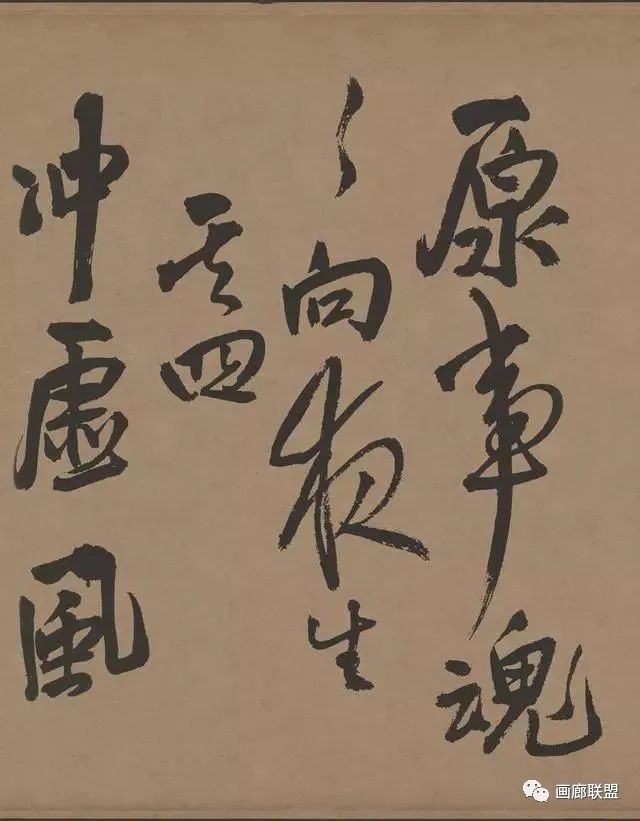 原事魂
〻向夜生
其四
冲虛風
画廊联盟